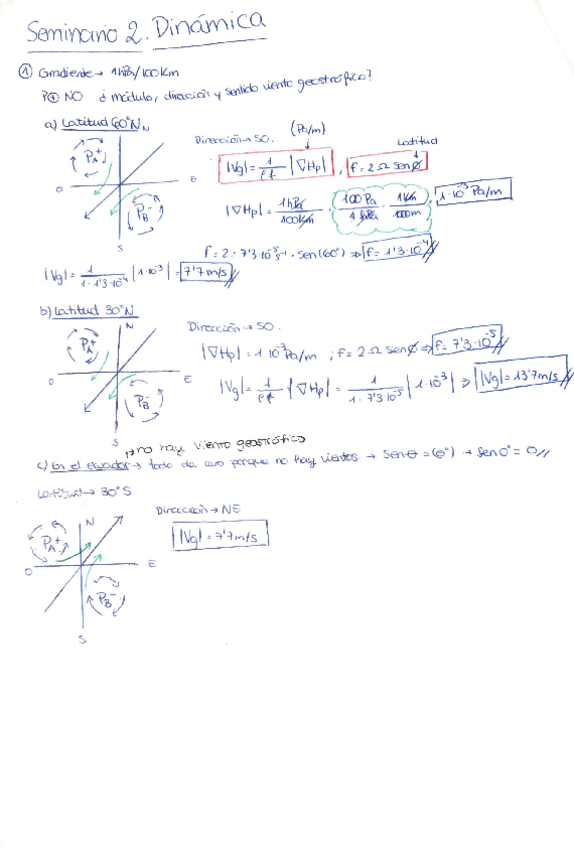 Seminario 2. Dinámica
① Gradiente → 1hPa/100Km
P⊕ NO ¿ módulo, dirección y sentido viento geostrófico?
a) Latitud 60°N
N
O
E
S
PA+
PB-
Dirección → SO.
(Pa/m)
Latitud
|Vg| = 1/ρf |∇Hp| , f = 2 Ω senø
|∇Hp| = 1hPa/100Km · 100Pa/1hPa · 1Km/1000m = 1·10⁻³ Pa/m
f = 2 · 7'3·10⁻⁵ s⁻¹ · sen(60°) ⇒ f = 1'3·10⁻⁴
|Vg| = 1/1·1'3·10⁻⁴ |1·10⁻³| = 7'7 m/s
b) Latitud 30°N
N
O
E
S
PA+
PB-
Dirección → SO.
|∇Hp| = 1·10⁻³ Pa/m ; f = 2 Ω senø ⇒ f = 7'3·10⁻⁵
|Vg| = 1/ρf · |∇Hp| = 1/1·7'3·10⁻⁵ |1·10⁻³| ⇒ |Vg| = 13'7 m/s
no hay viento geostrófico
c) En el ecuador → todo da cero porque no hay vientos → sen θ = (0°) → sen 0° = 0
Latitud → 30°S
N
O
E
S
PA+
PB-
Dirección → NE
|Vg| = 7'7 m/s